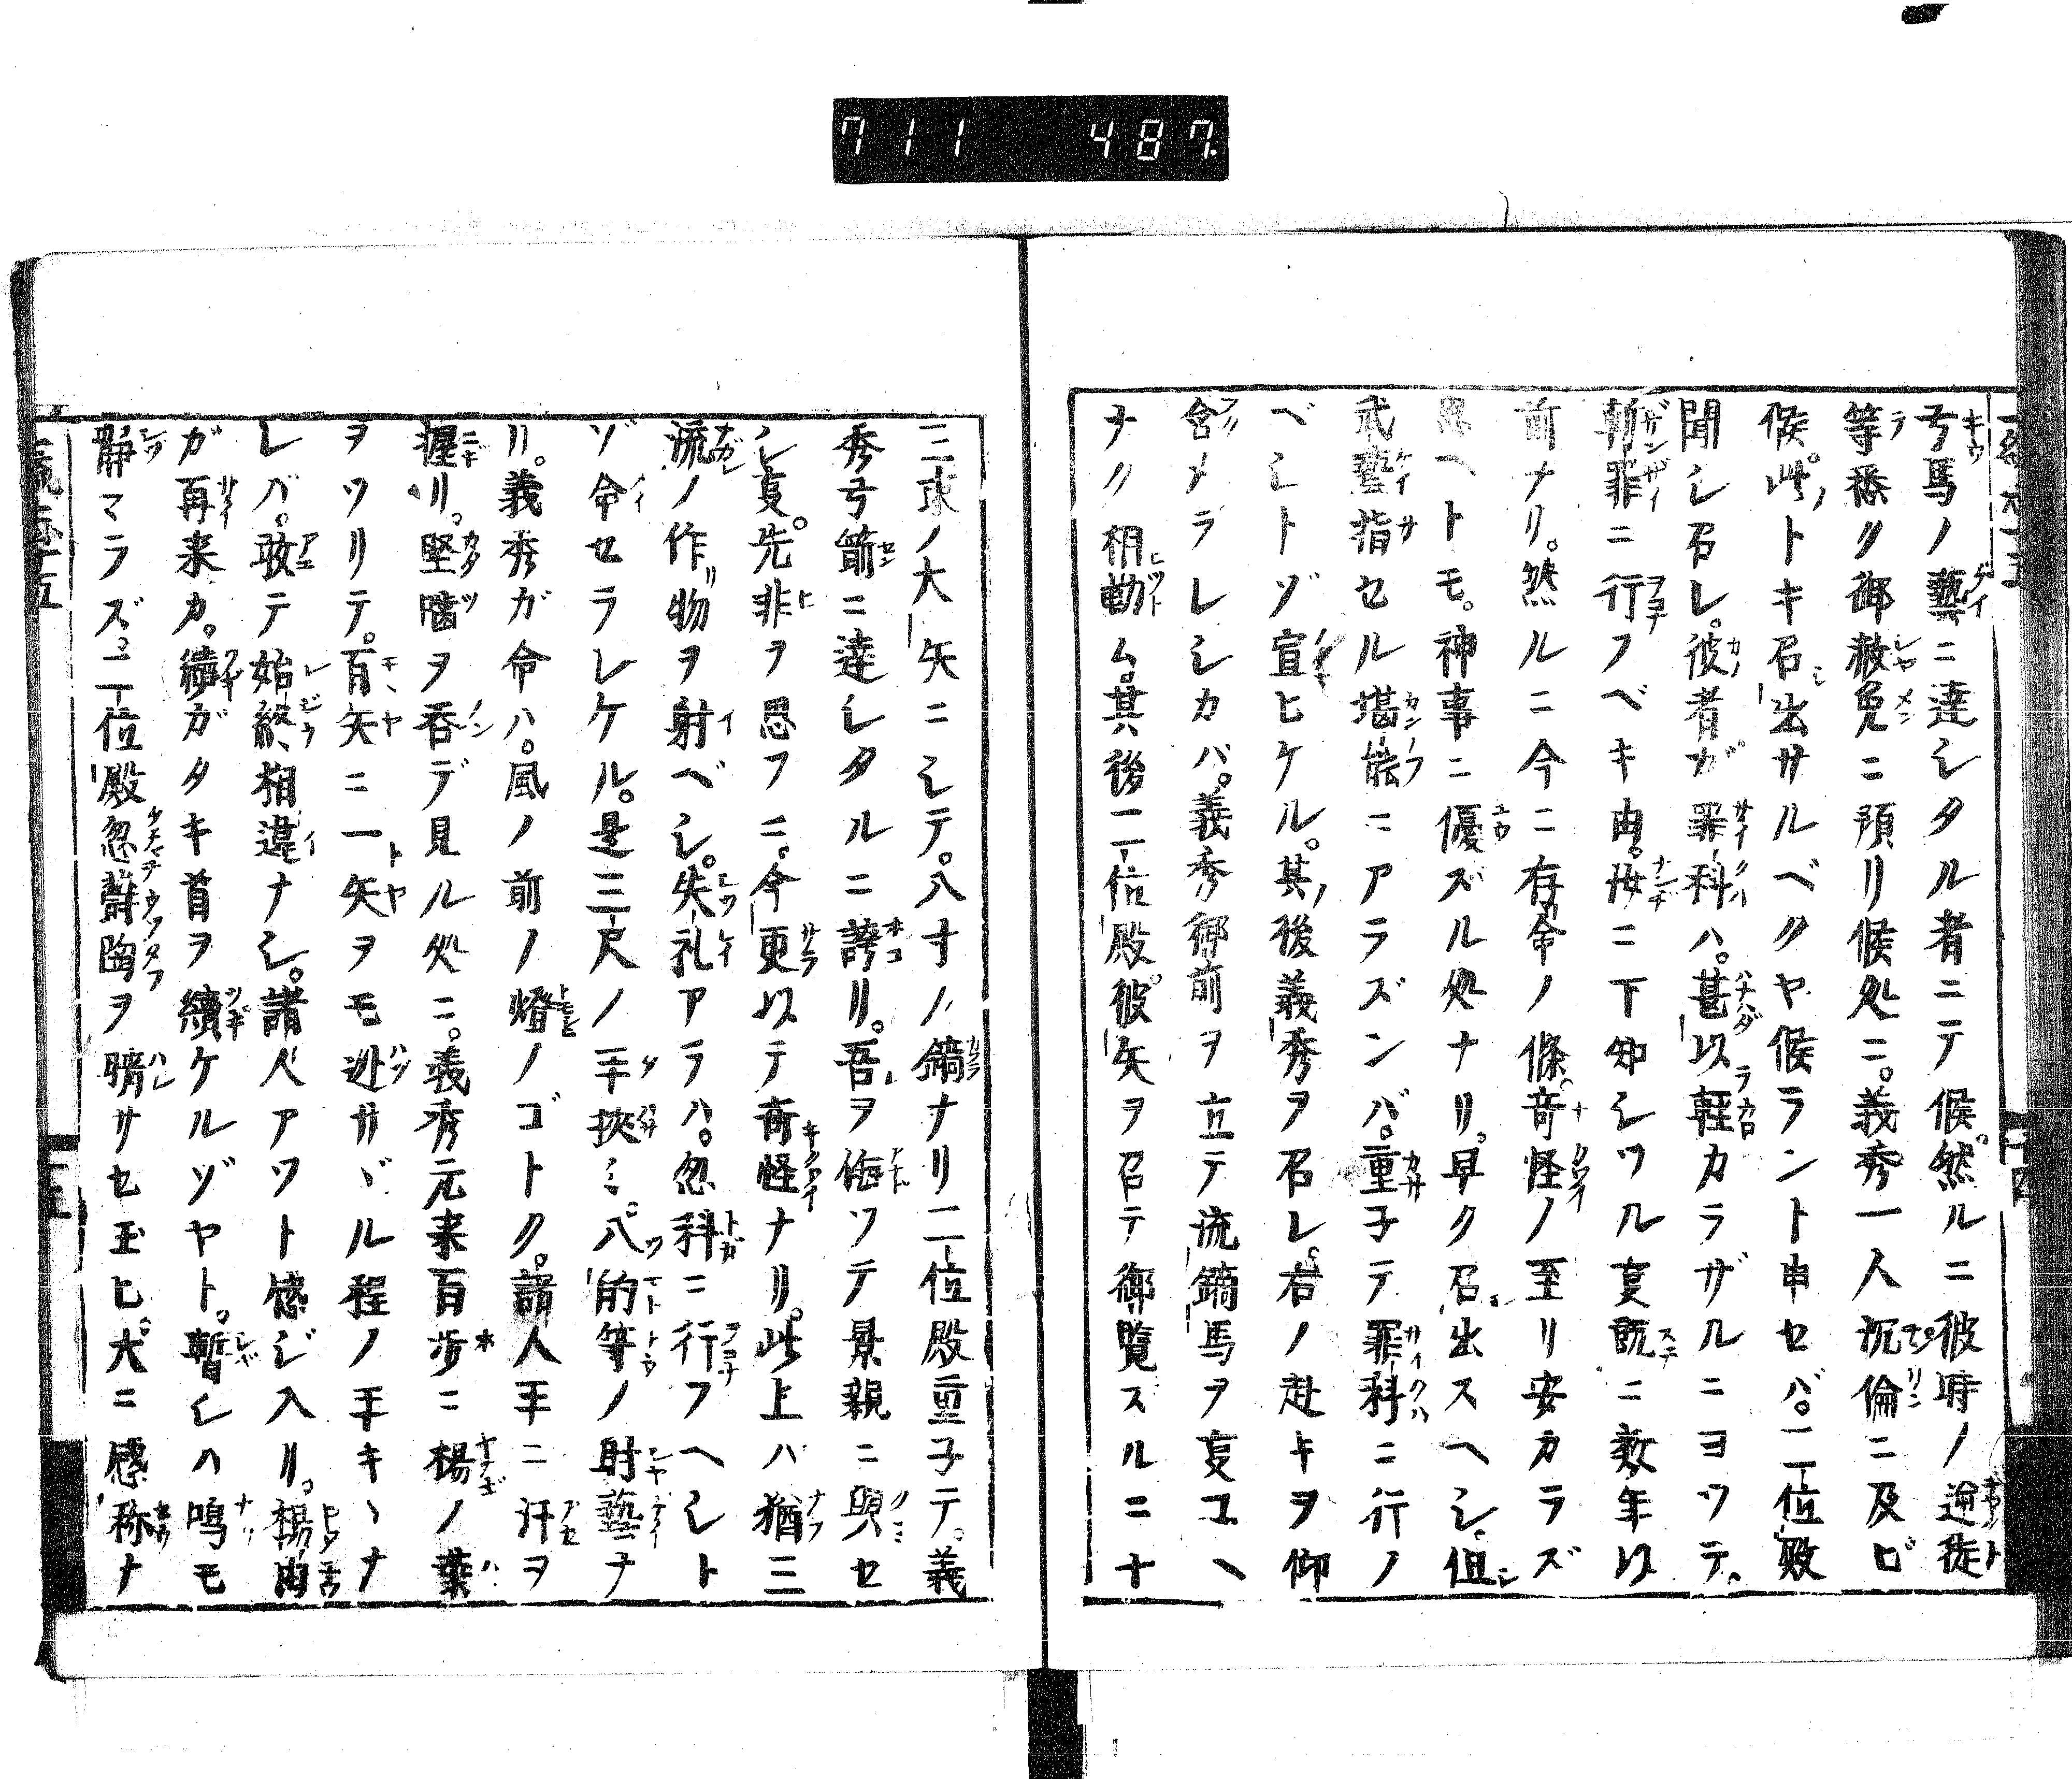 711 487
弓馬ノ藝ニ達シタル者ニテ候。然ルニ彼時ノ逆徒
等悉ク御赦免ニ預リ候処ニ。義秀一人沉倫ニ及ビ
候。此トキ召出サルベクヤ候ラント申セバ。二位殿
聞シ召レ。彼者ガ罪科ハ。甚以軽カラザルニヨツテ。
斬罪ニ行フベキ由。汝ニ下知シツル㕝既ニ数年以
前ナリ。然ルニ今ニ存命ノ條。奇怪ノ至リ安カラズ
思ヘトモ。神事ニ優ズル処ナリ。早ク召出スヘシ。但シ
武藝指セル堪能ニアラズンバ。重子テ罪科ニ行ノ
ベシトゾ宣ヒケル。其後義秀ヲ召レ。右ノ赴キヲ仰
含メラレシカバ。義秀御前ヲ立テ流鏑馬ヲ㕝ユヘ
ナク相勤ム。其後二位殿。彼矢ヲ召テ御覧ズルニ十
三束ノ大矢ニシテ。八寸ノ鏑ナリ二位殿重子テ。義
秀弓箭ニ達シタルニ誇リ。吾ヲ侮ツテ景親ニ與セ
シ㕝。先非ヲ思フニ。今更以テ奇怪ナリ。此上ハ猶三
流ノ作物ヲ射ベシ。失礼アラハ。忽科ニ行フヘシト
ゾ命セラレケル。是三尺ノ手挾ミ。八的等ノ射藝ナ
リ。義秀ガ命ハ。風ノ前ノ燈ノゴトク。諸人手ニ汗ヲ
握リ。堅唾ヲ呑デ見ル処ニ。義秀元来百歩ニ楊ノ葉
ヲツリテ。百矢ニ一矢ヲモ迯サヾル程ノ手キヽナ
レバ。敢テ始終相違ナシ。諸人アツト感ジ入リ。楊由
ガ再来カ。續ガタキ首ヲ續ケルゾヤト。暫シハ鳴モ
静マラズ。二位殿忽欝陶ヲ晴サセ玉ヒ。大ニ感称ナ